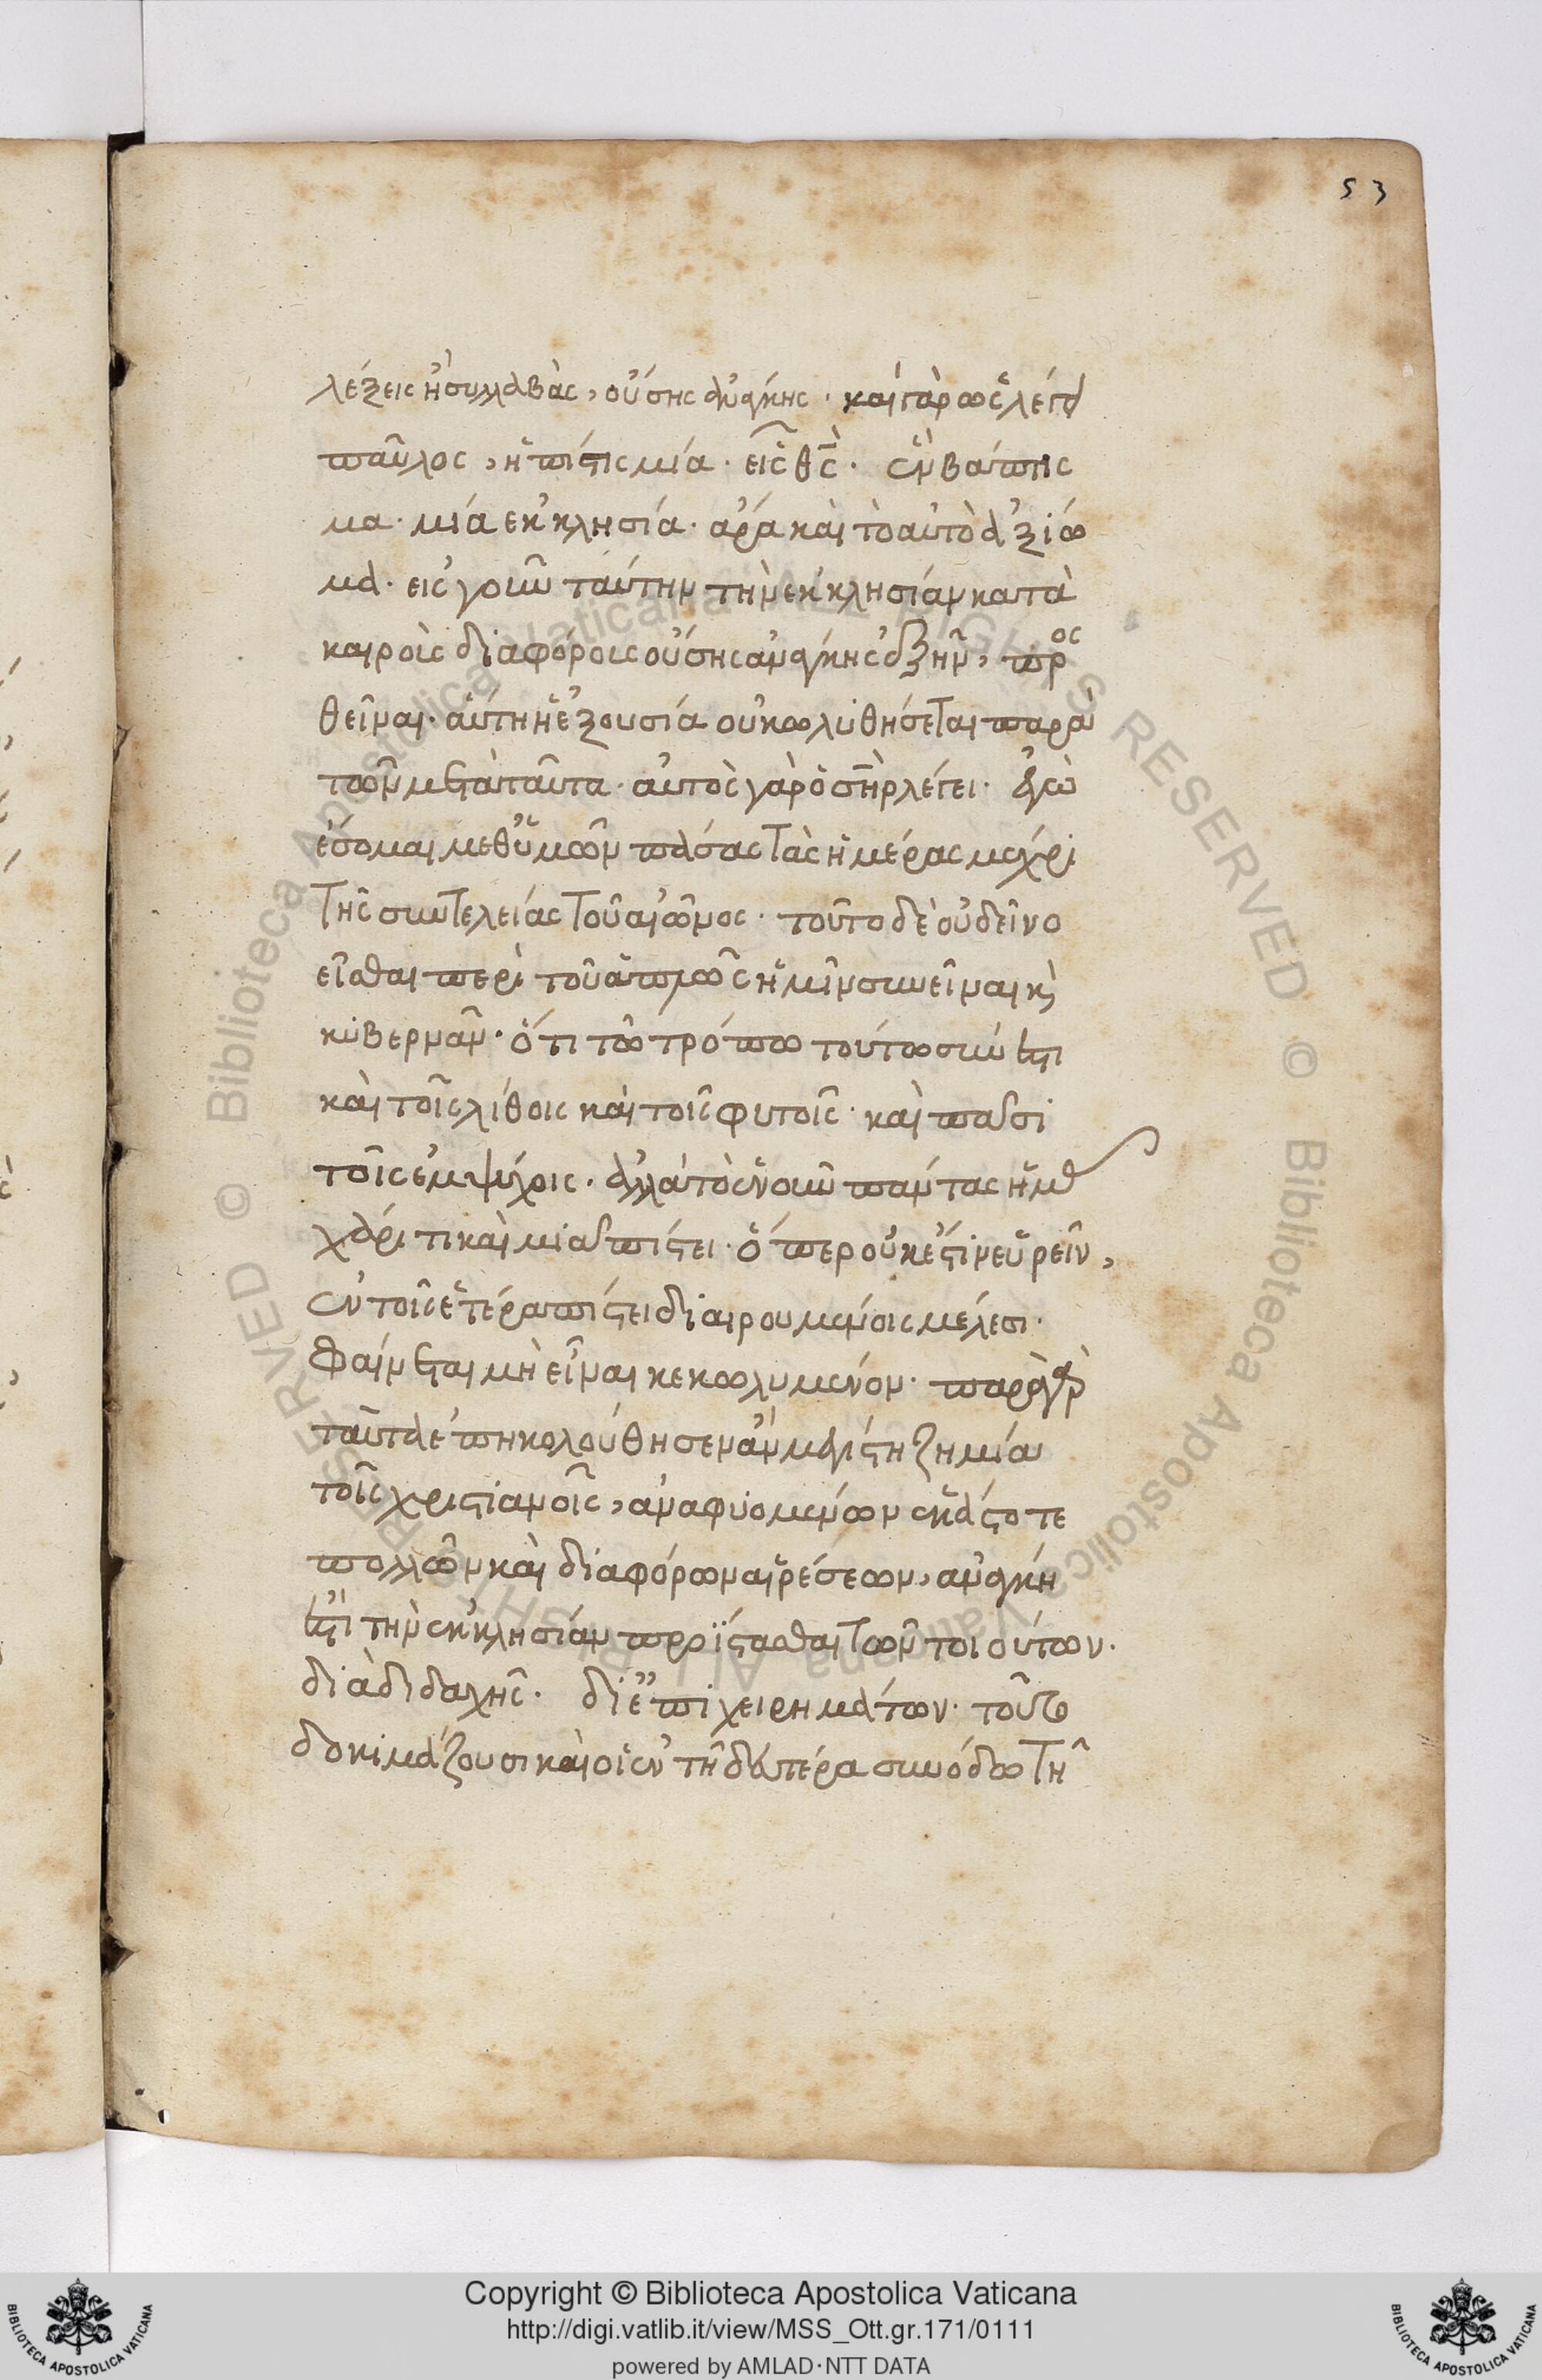 53
λέξεις ἢ συλλαβὰς, οὔσης ἀνάγκης. καὶ γὰρ ὡς λέγει
παῦλος, ἡ πίστις μία. εἷς θς. ἓν βάπτισ
μα. μία ἐκκλησία. ἄρα καὶ τὸ αὐτὸ ἀξίω
μα. εἰς γοῦν ταύτην τὴν ἐκκλησίαν κατὰ
καιροὺς διαφόροις οὔσης ἀνάγκης ἐδξῆν, προς
θεῖναι. αὕτη ἡ ἐξουσία οὐ κωλυθήσεται παρὰ
τῶν μετὰ ταῦτα. αὐτὸς γὰρ ὁ σηρ λέγει. ἐγὼ
ἔσομαι μεθ' ὑμῶν πάσας τὰς ἡμέρας μέχρι
τῆς συντελείας τοῦ αἰῶνος. τοῦτο δὲ οὐ δεῖ νο
εῖσθαι περὶ τοῦ ἁπλῶς ἡμῖν συνεῖναι κὶ
κυβερνᾶν. ὅτι τῶ τρόπω τούτω σύνεστι
καὶ τοῖς λίθοις καὶ τοῖς φυτοῖς. καὶ πᾶσι
τοῖς ἐμψύχοις. ἀλλὰ τὸ ἑνοῦν πάντας ἡμᾶς
χάριτι καὶ μιᾶ πίστει. ὅπερ οὐκ ἔστιν εὑρεῖν,
ἐν τοῖς ἑτέρα πίστει διαιρουμένοις μέλεσι.
φαίνεται μὴ εἶναι κεκωλυμένον. παρὰ γὰρ
ταῦτα ἐπηκολούθησεν ἂν μεγίστη ζημία
τοῖς χριστιανοῖς, ἀναφυομένων ἑκάστοτε
πολλῶν καὶ διαφόρων αἱρέσεων, ἀνάγκη
ἐστὶ τὴν ἐκκλησίαν προΐστασθαι τῶν τοιούτων.
διὰ διδαχῆς. δι' ἐπιχειρημάτων. τοῦτο
δοκιμάζουσι καὶ οἱ ἐν τῆ δευτέρα συνόδω τῆ
Copyright © Biblioteca Apostolica Vaticana
http://digi.vatlib.it/view/MSS_Ott.gr.171/0111
powered by AMLAD·NTT DATA